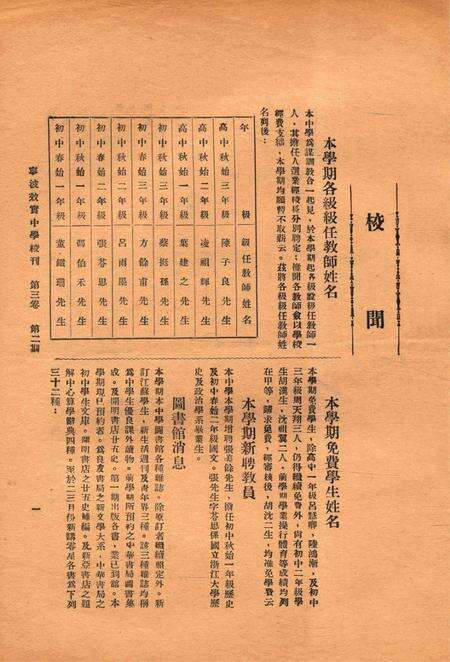 校聞
本學期各級級任教師姓名
本中學爲謀訓敎合一起見，於本學期起各級設級任教師一
人，其擔任人選業經校務分別聘定；惟聞各教師僉以學校
經費支絀，本學期均願暫不取薪云。茲將各級級任教師姓
名列後：
年級 級任教師姓名
高中秋始三年級 陳子良先生
高中秋始二年級 凌祖輝先生
高中秋始一年級 葉建之先生
初中秋始三年級 蔡挺孫先生
初中春始三年級 方餘甫先生
初中秋始二年級 呂雨暘先生
初中春始二年級 張苓思先生
初中秋始一年級 馮伯禾先生
初中春始一年級 董鑑瑆先生
本學期免費學生姓名
本學期免費學生，除高中一年級呂慧聯，陸鴻漸，及初中
三年級周天翔三人，仍得繼續免費外，尙有初中二年級學
生胡漢生，沈祖翼二人，前學期學業操行體育等成績均列
在甲等，請求免費，經審核後，胡沈二生，均准免學費云
本學期新聘教員
本中學本學期增聘張美餘先生，擔任初中秋始一年級歷史
及初中春始二年級國文。張先生字苓思係國立浙江大學歷
史及政治學系畢業生。
圖書館消息
本學期本中學圖書館各種雜誌，除原訂者繼續照定外，新
訂江蘇學生，新生活週刊及靑年界三種。該三種雜誌均稱
爲中學生優良課外讀物。前學期所預約之中華書局圖書集
成。及開明書店廿五史。第一期出版各書，業已到館。本
學期現已預約者。爲良友書局之新文學大系，中華書局之
初中學生文庫。開明書店之廿五史補編。及新亞書店之題
解中心算學辭典四種。至於二三月份新購零星各書爲下列
三十二種：
寧波效實中學校刊 第三卷 第二期
一